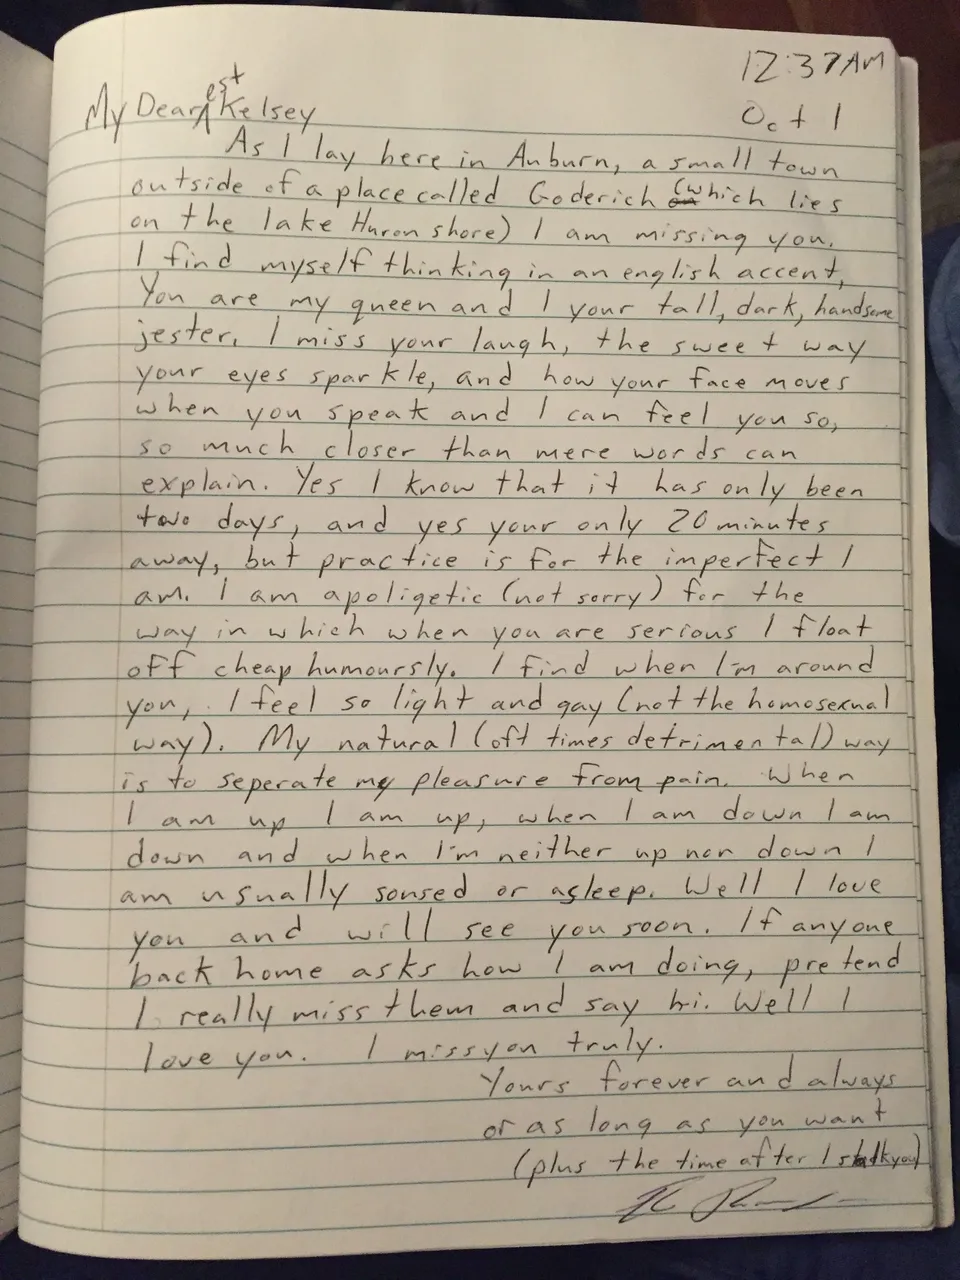 12:37AM
Oct 1
My Dearest Kelsey
As I lay here in Auburn, a small town
outside of a place called Goderich (which lies
on the lake Huron shore) I am missing you.
I find myself thinking in an english accent,
You are my queen and I your tall, dark, handsome
jester. I miss your laugh, the sweet way
your eyes sparkle, and how your face moves
when you speak and I can feel you so,
so much closer than mere words can
explain. Yes I know that it has only been
two days, and yes your only 20 minutes
away, but practice is for the imperfect I
am. I am apoligetic (not sorry) for the
way in which when you are serious I float
off cheap humoursly. I find when I'm around
you, I feel so light and gay (not the homosexual
way). My natural (oft times detrimental) way
is to seperate my pleasure from pain. When
I am up I am up, when I am down I am
down and when I'm neither up nor down I
am usually sonsed or asleep. Well I love
you and will see you soon. If anyone
back home asks how I am doing, pretend
I really miss them and say hi. Well I
love you. I miss you truly.
Yours forever and always
or as long as you want
(plus the time after I stalk you)